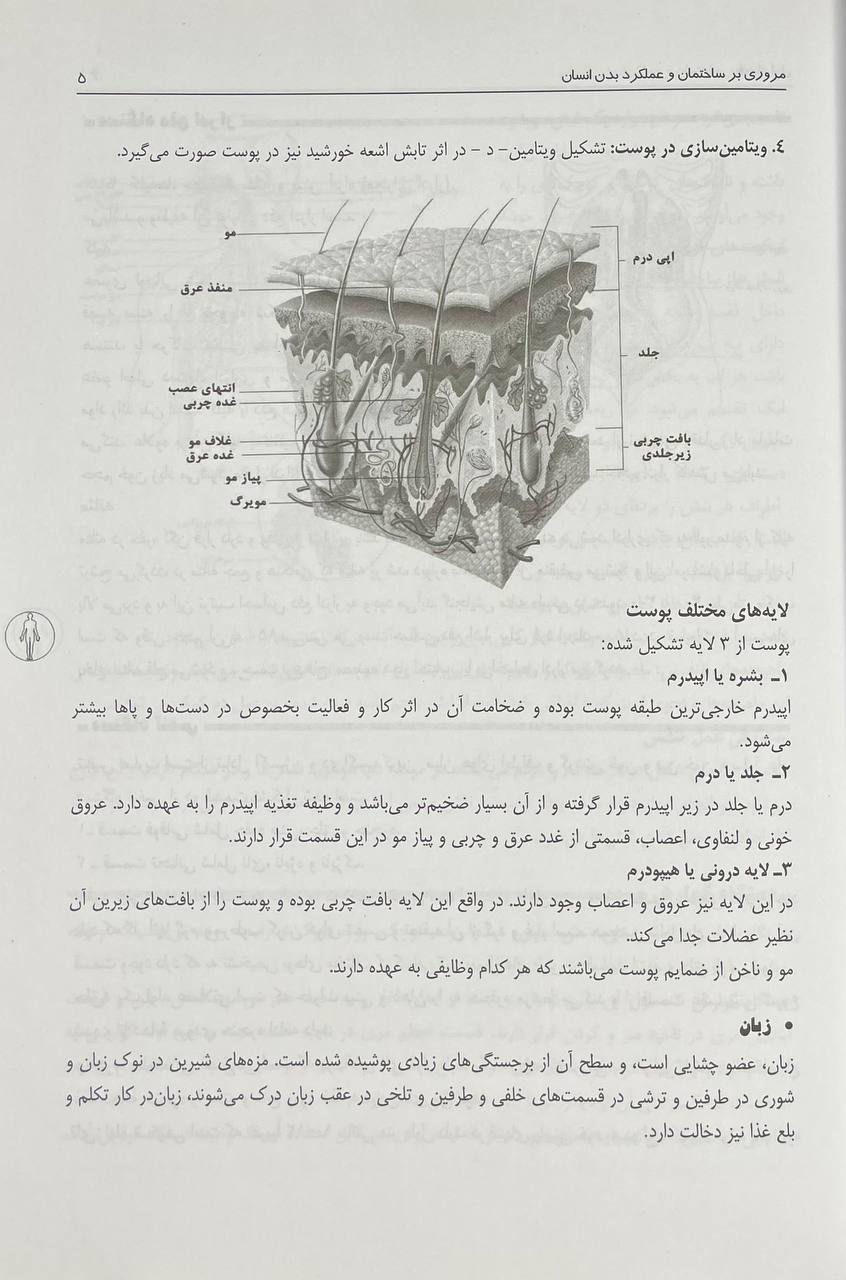 مروری بر ساختمان و عملکرد بدن انسان
۵
۴. ویتامین‌سازی در پوست: تشکیل ویتامین- د - در اثر تابش اشعه خورشید نیز در پوست صورت می‌گیرد.
مو
منفذ عرق
انتهای عصب
غده چربی
غلاف مو
غده عرق
پیاز مو
مویرگ
اپی درم
جلد
بافت چربی
زیرجلدی
لایه‌های مختلف پوست
پوست از ۳ لایه تشکیل شده:
۱ـ بشره یا اپیدرم
اپیدرم خارجی‌ترین طبقه پوست بوده و ضخامت آن در اثر کار و فعالیت بخصوص در دست‌ها و پاها بیشتر
می‌شود.
۲ـ جلد یا درم
درم یا جلد در زیر اپیدرم قرار گرفته و از آن بسیار ضخیم‌تر می‌باشد و وظیفه تغذیه اپیدرم را به عهده دارد. عروق
خونی و لنفاوی، اعصاب، قسمتی از غدد عرق و چربی و پیاز مو در این قسمت قرار دارند.
۳ـ لایه درونی یا هیپودرم
در این لایه نیز عروق و اعصاب وجود دارند. در واقع این لایه بافت چربی بوده و پوست را از بافت‌های زیرین آن
نظیر عضلات جدا می‌کند.
مو و ناخن از ضمایم پوست می‌باشند که هر کدام وظایفی به عهده دارند.
• زبان
زبان، عضو چشایی است، و سطح آن از برجستگی‌های زیادی پوشیده شده است. مزه‌های شیرین در نوک زبان و
شوری در طرفین و ترشی در قسمت‌های خلفی و طرفین و تلخی در عقب زبان درک می‌شوند، زبان‌در کار تکلم و
بلع غذا نیز دخالت دارد.